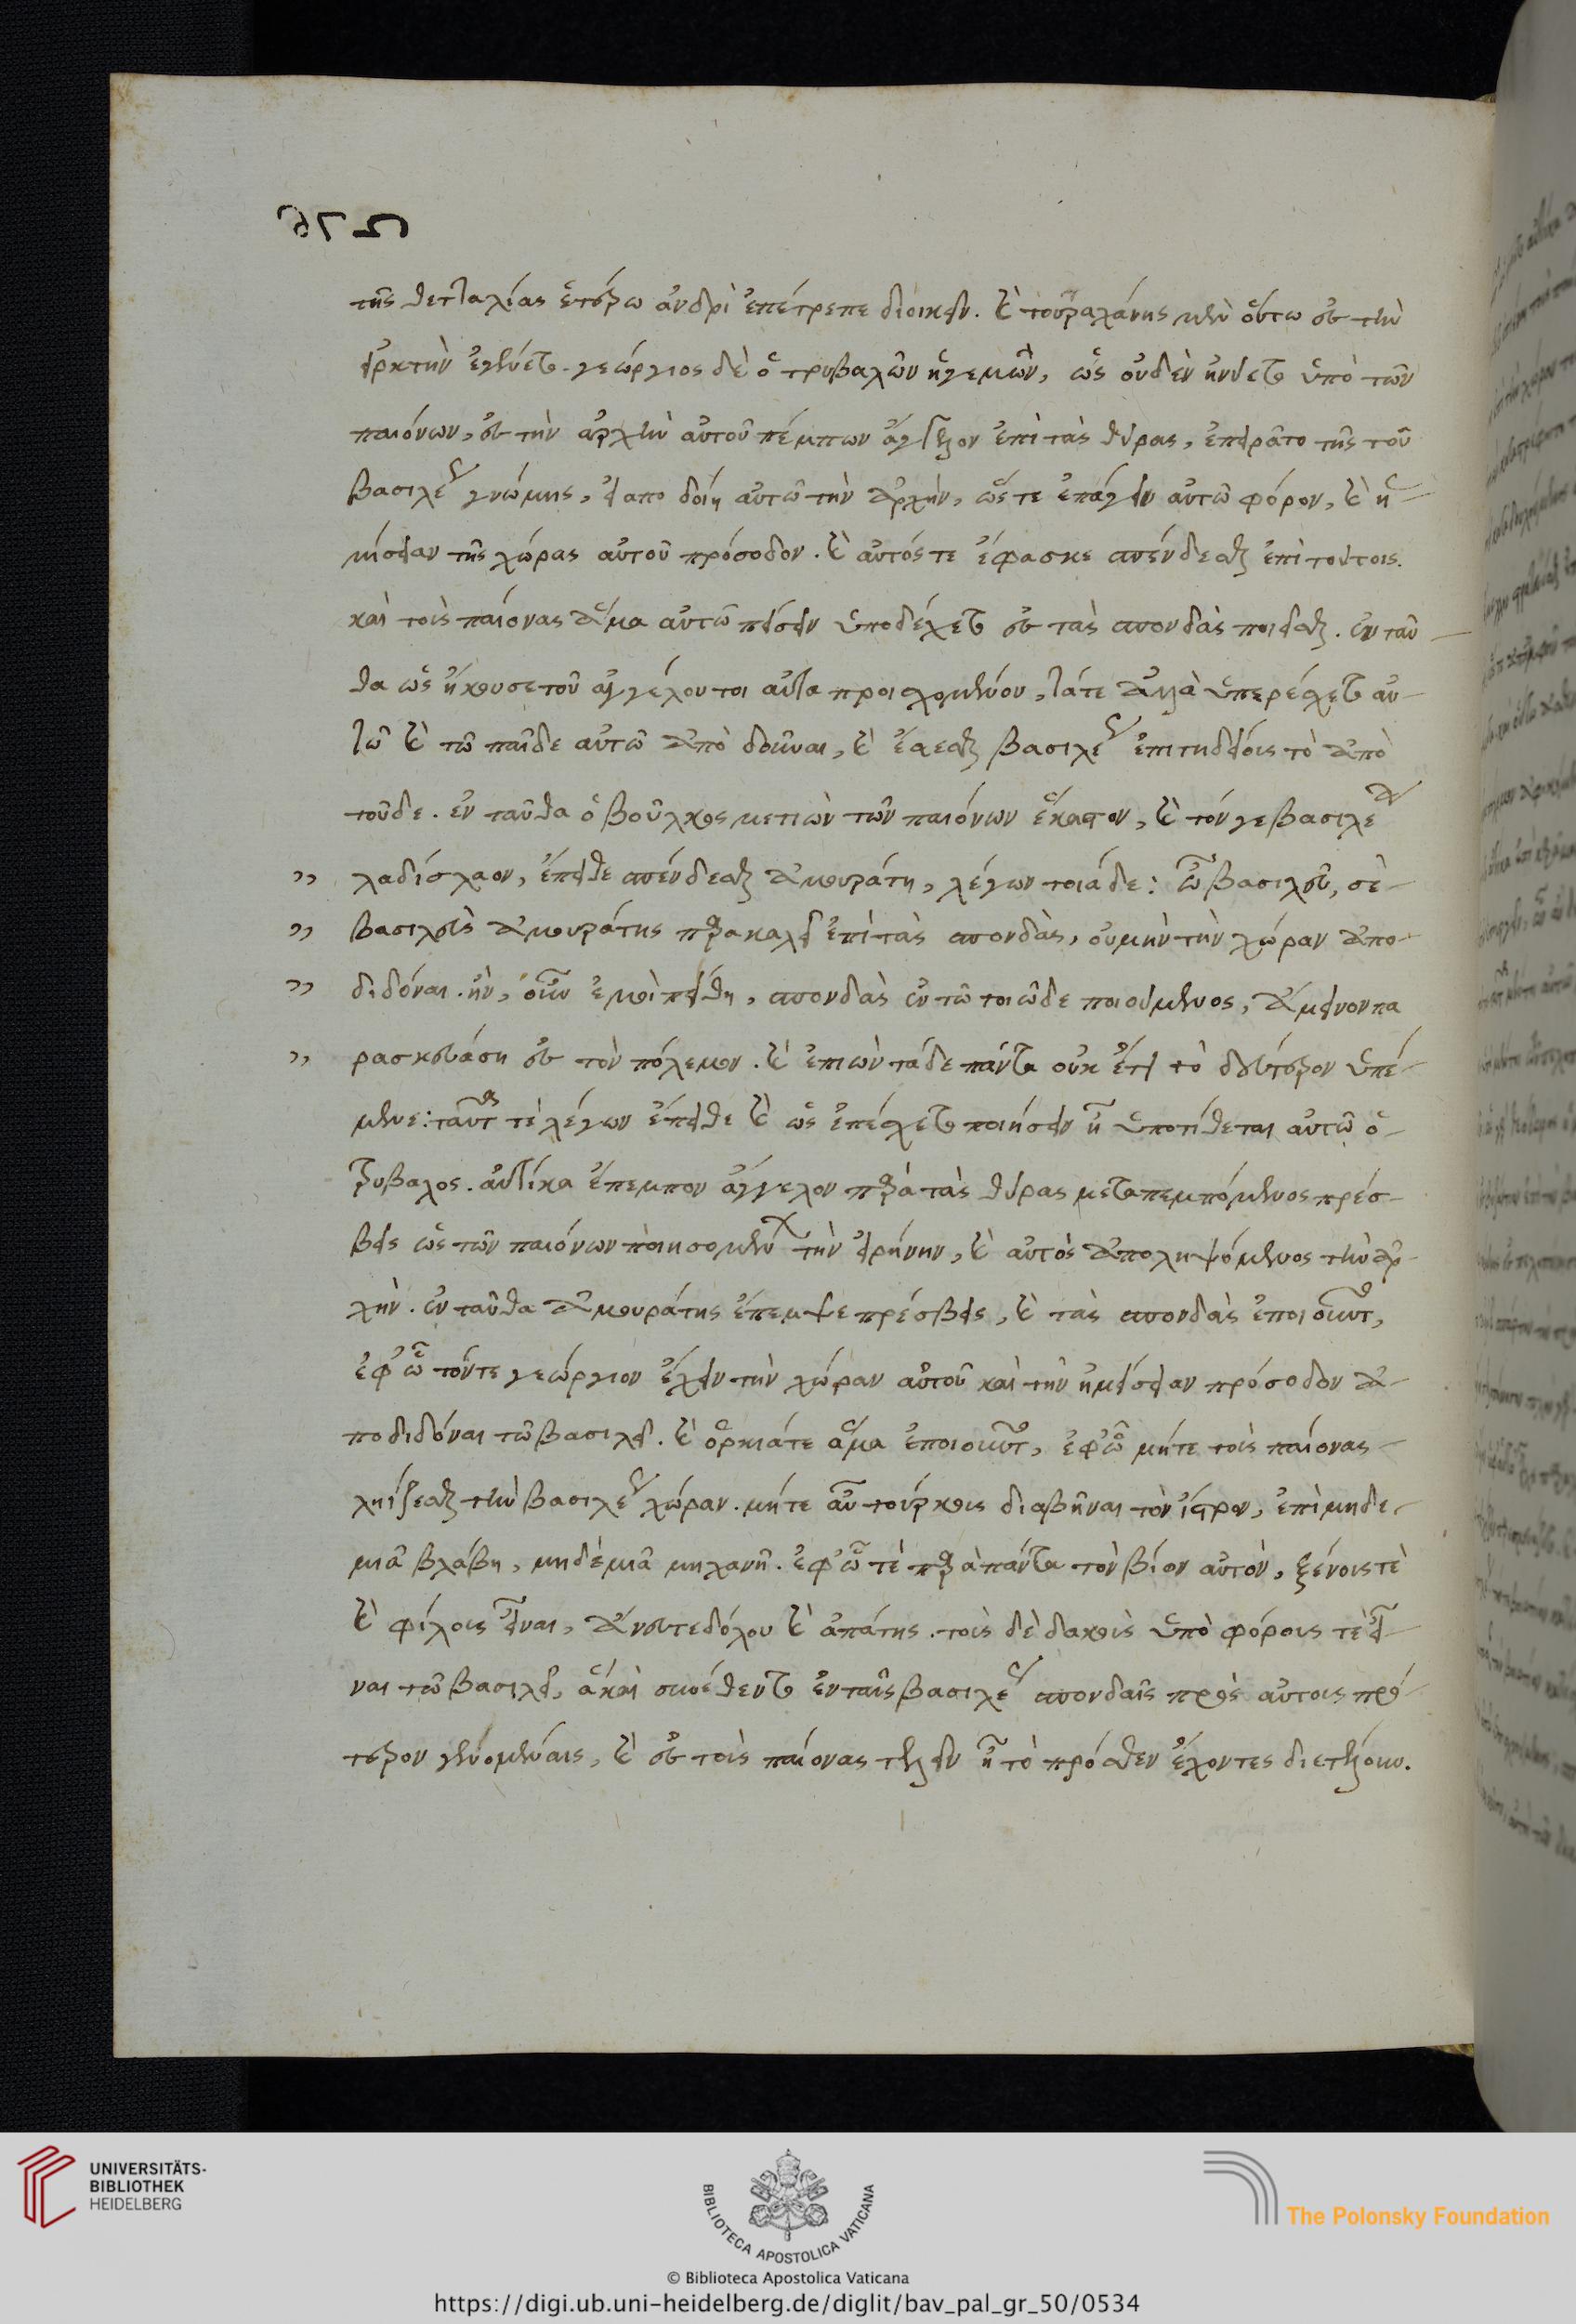 της θετταλίας ἑτέρω ἀνδρὶ ἐπέτρεπε διοικεῖν. καὶ τουραχάνης μὲν οὕτω ἐς τὴν
εἱρκτὴν ἐγένετο. γεώργιος δὲ ὁ τριβαλῶν ἡγεμὼν, ὡς οὐδὲν ἠνύετο ὑπὸ τῶν
παιόνων, ἐς τὴν ἀρχὴν αὐτοῦ πέμπων ἄγγελον ἐπὶ τὰς θύρας, ἐπειρᾶτο τῆς τοῦ
βασιλέως γνώμης, εἰ αποδοίη αὐτῶ τὴν ἀρχὴν, ὥστε ἐπάγειν αὐτῶ φόρον, καὶ ἡ-
μίσειαν τῆς χώρας αὐτοῦ πρόσοδον. καὶ αὐτός τε ἔφασκε σπένδεσθαι ἐπὶ τούτοις.
καὶ τοὺς παίονας ἅμα αὐτῶ πείσειν ὑποδέχεται ἐς τὰς σπονδὰς ποιεῖσθαι. ἐνταῦ-
θα ὡς ἤκουσε τοῦ ἀγγέλου τοιαῦτα προισχομένου, τά τε ἄλλα ὑπερέσχετο αὐ-
τῶ καὶ τῶ παῖδε αὐτῶ ἀποδοῦναι, καὶ ἔσεσθαι βασιλέως ἐπιτήδειος τὸ ἀπὸ
τοῦδε. ἐνταῦθα ὁ βοῦλκος μετιὼν τῶν παιόνων ἕκαστον, καὶ τόν γε βασιλέα
λαδίσλαον, ἔπειθε σπένδεσθαι ἀμουράτη, λέγων τοιάδε: ὦ βασιλεῦ, σὲ
βασιλεὺς ἀμουράτης παρακαλεῖ ἐπὶ τὰς σπονδὰς, οὐμὴν τὴν χώραν ἀπο-
διδόναι. ἢν, οὖν ἐμοὶ πείθη, σπονδὰς ἐν τῶ τοιῶδε ποιούμενος, ἄμεινον πα
ρασκευάση ἐς τὸν πόλεμον. καὶ ἐπιὼν τάδε πάντα οὐκ ἔτι τὸ δεύτερον ὑπέ-
μενε: ταῦτά τὲ λέγων ἔπειθε καὶ ὡς ἐπέσχετο ποιήσειν ἧ ὑποτίθεται αὐτῶ ὁ
τριβαλος. αὐτίκα ἔπεμπον ἄγγελον παρὰ τὰς θύρας μεταπεμπόμενος πρέσ-
βεις ὡς τῶν παιόνων ποιησομένων τὴν εἰρήνην, καὶ αὐτὸς ἀποληψόμενος τὴν ἀρ-
χήν. ἐνταῦθα ἀμουράτης ἔπεμψε πρέσβεις, καὶ τὰς σπονδὰς ἐποιοῦντο,
ἐφ' ὧ τόντε γεώργιον ἔχειν τὴν χώραν αὐτοῦ καὶ τὴν ἡμίσειαν πρόσοδον ἀ-
ποδιδόναι τῶ βασιλεῖ. καὶ ὅρκιά τε ἅμα ἐποιοῦντο, ἐφ' ὧ μήτε τοὺς παίονας
ληίζεσθαι τὴν βασιλέως χώραν. μήτε αὖ τούρκοις διαβῆναι τὸν ἴστρον, ἐπὶ μηδε-
μιᾶ βλάβη, μηδὲ μιᾶ μηχανῆ. ἐφ' ὧ τὲ παρὰ πάντα τὸν βίον αὐτὸν, ξένοις τὲ
καὶ φίλοις εἶναι, ἄνευ τε δόλου καὶ ἀπάτης. τοὺς δὲ δακοὺς ὑπὸ φόροις τὲ εἶ-
ναι τῶ βασιλεῖ, ἃ καὶ συνέθεντο ἐν ταῖς βασιλέως σπονδαῖς πρὸς αὐτοις πρό-
τερον γενομέναις, καὶ ἐς τοὺς παίονας τελεῖν ἧ τὸ πρόσθεν ἔχοντες διετέλουν.